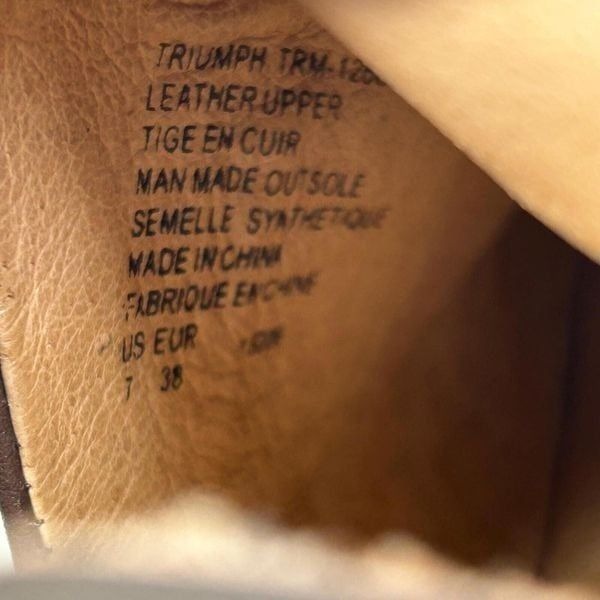 TRIUMPH TRM-126
LEATHER UPPER
TIGE EN CUIR
MAN MADE OUTSOLE
SEMELLE SYNTHETIQUE
MADE IN CHINA
FABRIQUE EN CHINE
US EUR
7 38